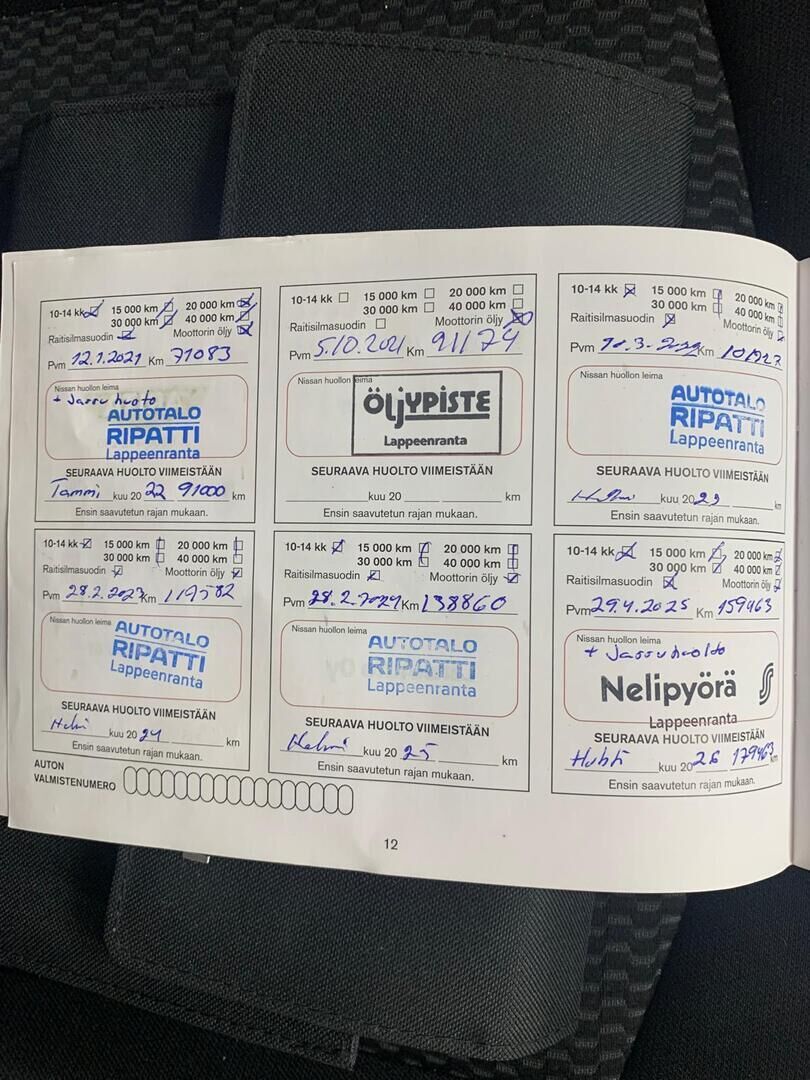 10-14 kk 15 000 km 20 000 km
30 000 km 40 000 km
Raitisilmasuodin Moottorin öljy
Pvm 12.1.2021 Km 71083
Nissan huollon leima
+ Jarruhuolto
AUTOTALO
RIPATTI
Lappeenranta
SEURAAVA HUOLTO VIIMEISTÄÄN
Tammi kuu 20 22 91000 km
Ensin saavutetun rajan mukaan.
10-14 kk 15 000 km 20 000 km
30 000 km 40 000 km
Raitisilmasuodin Moottorin öljy
Pvm 5.10.2021 Km 91174
Nissan huollon leima
ÖljYPISTE
Lappeenranta
SEURAAVA HUOLTO VIIMEISTÄÄN
kuu 20 km
Ensin saavutetun rajan mukaan.
10-14 kk 15 000 km 20 000 km
30 000 km 40 000 km
Raitisilmasuodin Moottorin öljy
Pvm Km
Nissan huollon leima
AUTOTALO
RIPATTI
Lappeenranta
SEURAAVA HUOLTO VIIMEISTÄÄN
kuu 20 23 km
Ensin saavutetun rajan mukaan.
10-14 kk 15 000 km 20 000 km
30 000 km 40 000 km
Raitisilmasuodin Moottorin öljy
Pvm 28.2.2023 Km
Nissan huollon leima
AUTOTALO
RIPATTI
Lappeenranta
SEURAAVA HUOLTO VIIMEISTÄÄN
Helmi kuu 20 24 km
Ensin saavutetun rajan mukaan.
10-14 kk 15 000 km 20 000 km
30 000 km 40 000 km
Raitisilmasuodin Moottorin öljy
Pvm 28.2.2024 Km 138860
Nissan huollon leima
AUTOTALO
RIPATTI
Lappeenranta
SEURAAVA HUOLTO VIIMEISTÄÄN
Helmi kuu 20 25 km
Ensin saavutetun rajan mukaan.
10-14 kk 15 000 km 20 000 km
30 000 km 40 000 km
Raitisilmasuodin Moottorin öljy
Pvm 29.4.2025 Km 159463
Nissan huollon leima
+ Jarruhuolto
Nelipyörä
Lappeenranta
SEURAAVA HUOLTO VIIMEISTÄÄN
Huhti kuu 20 26 179463 km
Ensin saavutetun rajan mukaan.
AUTON
VALMISTENUMERO
12